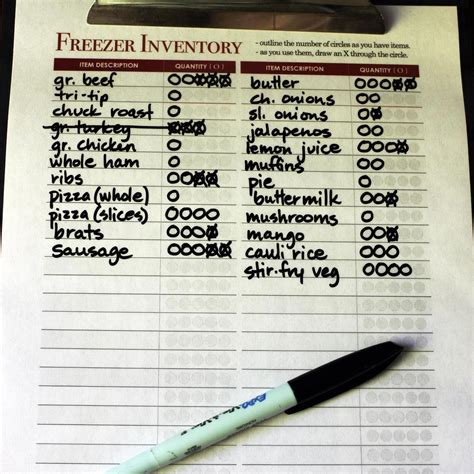 FREEZER INVENTORY
- outline the number of circles as you have items.
- as you use them, draw an X through the circle.
ITEM DESCRIPTION QUANTITY (O)
gr. beef
tri-tip
chuck roast
gr. turkey
gr. chicken
whole ham
ribs
pizza (whole)
pizza (slices)
brats
sausage
ITEM DESCRIPTION QUANTITY (O)
butter
ch. onions
sl. onions
jalapenos
lemon juice
muffins
pie
buttermilk
mushrooms
mango
cauli rice
stir-fry veg